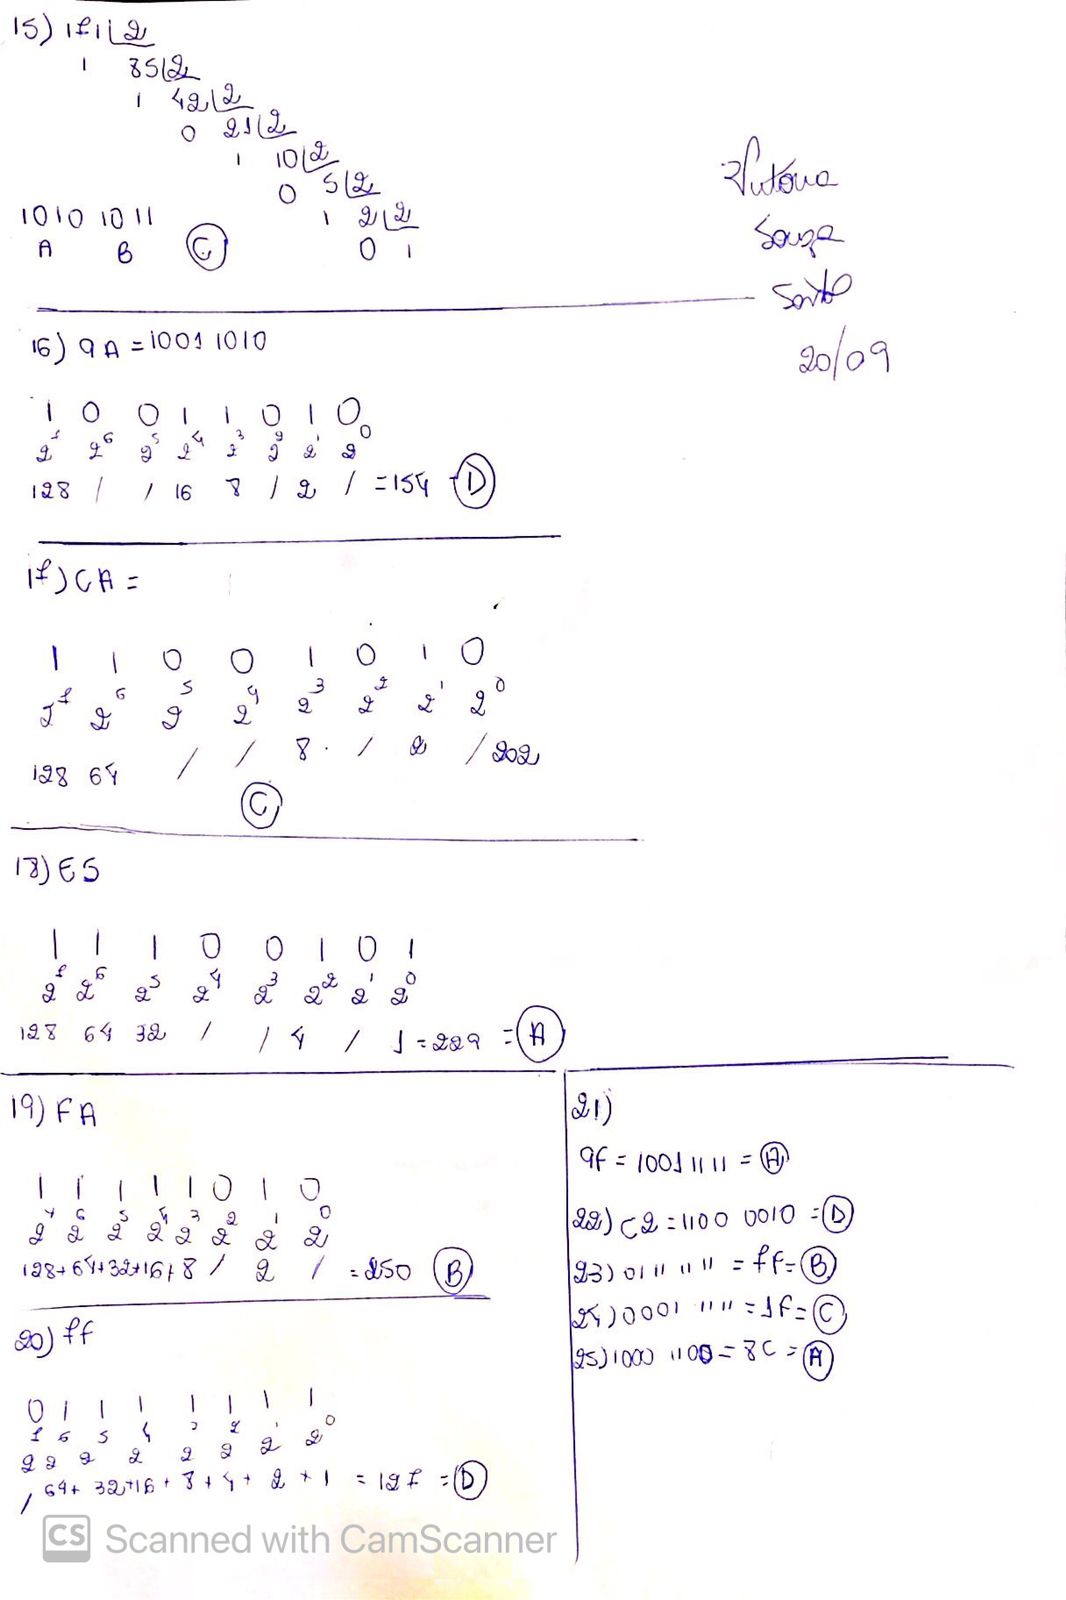 15) 171 2
1 85 2
1 42 2
0 21 2
1 10 2
0 5 2
1 2 2
0 1
1010 1011
A B C
Souza
20/09
16) 9A = 1001 1010
1 0 0 1 1 0 1 0
2^7 2^6 2^5 2^4 2^3 2^2 2^1 2^0
128 / / 16 8 / 2 / = 154 D
17) CA =
1 1 0 0 1 0 1 0
2^7 2^6 2^5 2^4 2^3 2^2 2^1 2^0
128 64 / / 8 . / 2 / 202
C
18) E5
1 1 1 0 0 1 0 1
2^7 2^6 2^5 2^4 2^3 2^2 2^1 2^0
128 64 32 / / 4 / 1 = 229 = A
19) FA
1 1 1 1 1 0 1 0
2^7 2^6 2^5 2^4 2^3 2^2 2^1 2^0
128+64+32+16+8 / 2 / = 250 B
20) 7F
0 1 1 1 1 1 1 1
2^7 2^6 2^5 2^4 2^3 2^2 2^1 2^0
/ 64+ 32+16 + 8 + 4 + 2 + 1 = 127 = D
21)
9F = 1001 1111 = A
22) C2 = 1100 0010 = D
23) 0111 1111 = 7F = B
24) 0001 1111 = 1F = C
25) 1000 1100 = 8C = A
CS Scanned with CamScanner